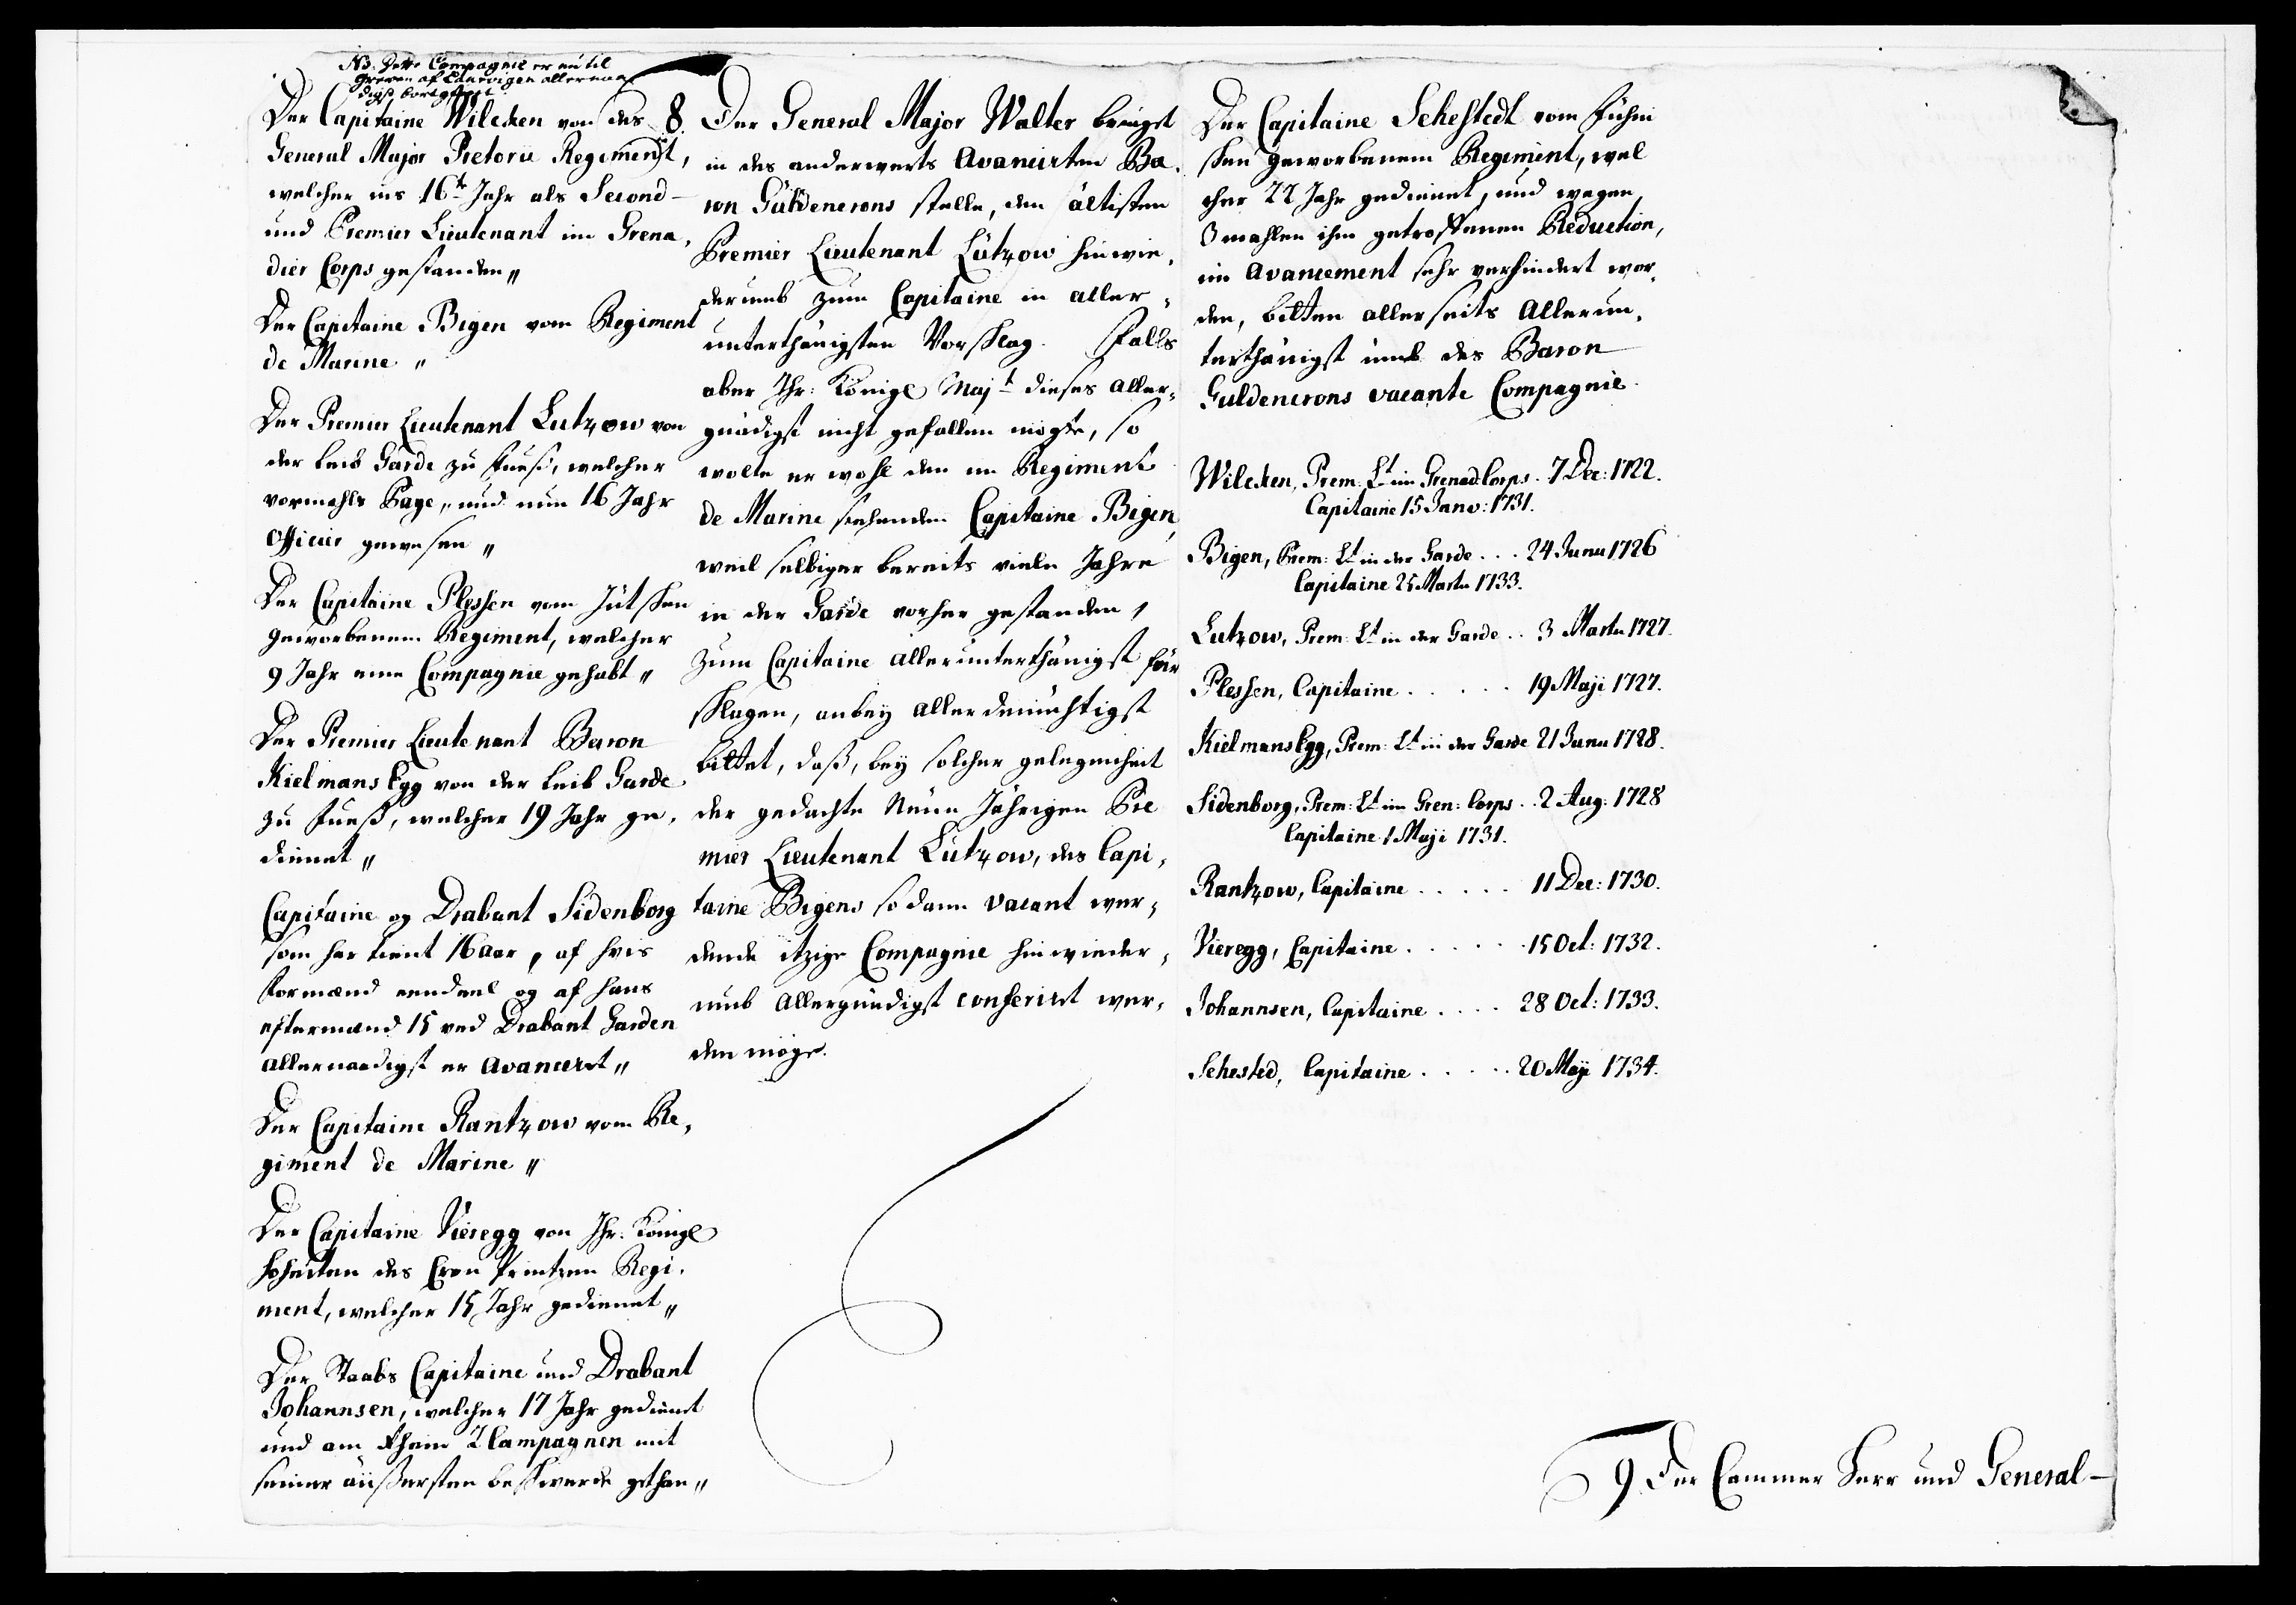 NB. Dette Compagnie er nu til
Greven af Laurvigen allernaa
digst bortgivet.
Der Capitaine Wilcken von des
General Major Pretorii Regiment,
welcher ins 16te Jahr als Second-
und Premier Lieutenant im Grena,
dier Corps gestanden〃
Der Capitaine Bigen vom Regiment
de Marine〃
Der Premier Lieutenant Lutzow von
der Leib Garde zu Fueß, welcher
vormahls Page, und nun 16 Jahr
Officier gewesen〃
Der Capitaine Plessen vom Jütschen
geworbenem Regiment, welcher
9 Jahr eine Compagnie gehabt〃
Der Premier Lieutenant Baron
Kielmans Egg von der Leib Garde
zu Fueß, welcher 19 Jahr ge,
dienet〃
Capitaine og Drabant Sidenborg
som har tient 16 aar, af hvis
Formænd eendeel og af hans
eftermænd 15 ved Drabant Garden
allernaadigst er Avanceret〃
Der Capitaine Rantzow vom Re,
giment de Marine〃
Der Capitaine Vieregg von Ihr. Königl
Hoheiten des Cron Printzen Regi,
ment, welcher 15 Jahr gedienet〃
Der Staabs Capitaine und Drabant
Johannsen, welcher 17 Jahr gedienet
und am Rhein 2 Campagnen mit
seiner äüßersten beschwerde gethan〃
8. Der General Major Walter bringet
in des anderwerts Avancirten Ba,
ron Güldencrons stelle, den ältisten
Premier Lieutenant Lützow hinwie,
derumb zum Capitaine in aller,
unterthänigsten Vorschlag. Falls
aber Ihr: Königl Majt dieses aller,
gnädigst nicht gefallen mögte, so
wolte er wohl den im Regiment
de Marine stehenden Capitaine Bigen,
weil selbiger bereits viele Jahre
in der Garde vorher gestanden,
zum Capitaine allerunterthänigst für
schlagen, anbey allerdemühtigst
bittet, daß, bey solcher gelegenheit
der gedachte Neün Jährigen Pre
mier Lieutenant Lützow, des Capi,
taine Bigens so dann vacant wer,
dende itzige Compagnie hinwieder,
umb Allergnädigst conferiret wer,
den möge.
Der Capitaine Sehestedt vom Fühni
schen geworbenem Regiment, wel
cher 22 Jahr gedienet, und wegen
3 mahlen ihm getroffenen Reduction,
im Avancement sehr verhindert wor,
den, bitten allerseits Allerun,
terthänigst umb des Baron
Guldencrons vacante Compagnie.
Wilcken, Prem: Lt im Grenad Corps. 7 Dec: 1722.
Capitaine 15 Janv: 1731.
Bigen, Prem: Lt in der Garde . . . 24 Junii 1726
Capitaine 25 Martii 1733.
Lutzow, Prem: Lt in der Garde . . 3 Martii 1727.
Plessen, Capitaine . . . . . 19 Maji 1727.
Kielmans Egg, Prem: Lt in der Garde 21 Junii 1728.
Sidenborg, Prem: Lt im Gren: Corps . . 2 Aug: 1728
Capitaine 1 Maji 1731.
Rantzow, Capitaine . . . . . 11 Dec: 1730.
Vieregg, Capitaine . . . . . . 15 Oct: 1732.
Johannsen, Capitaine . . . . 28 Oct: 1733.
Sehested, Capitaine . . . . . 20 Maji 1734.
9. Der Cammer Herr und General-